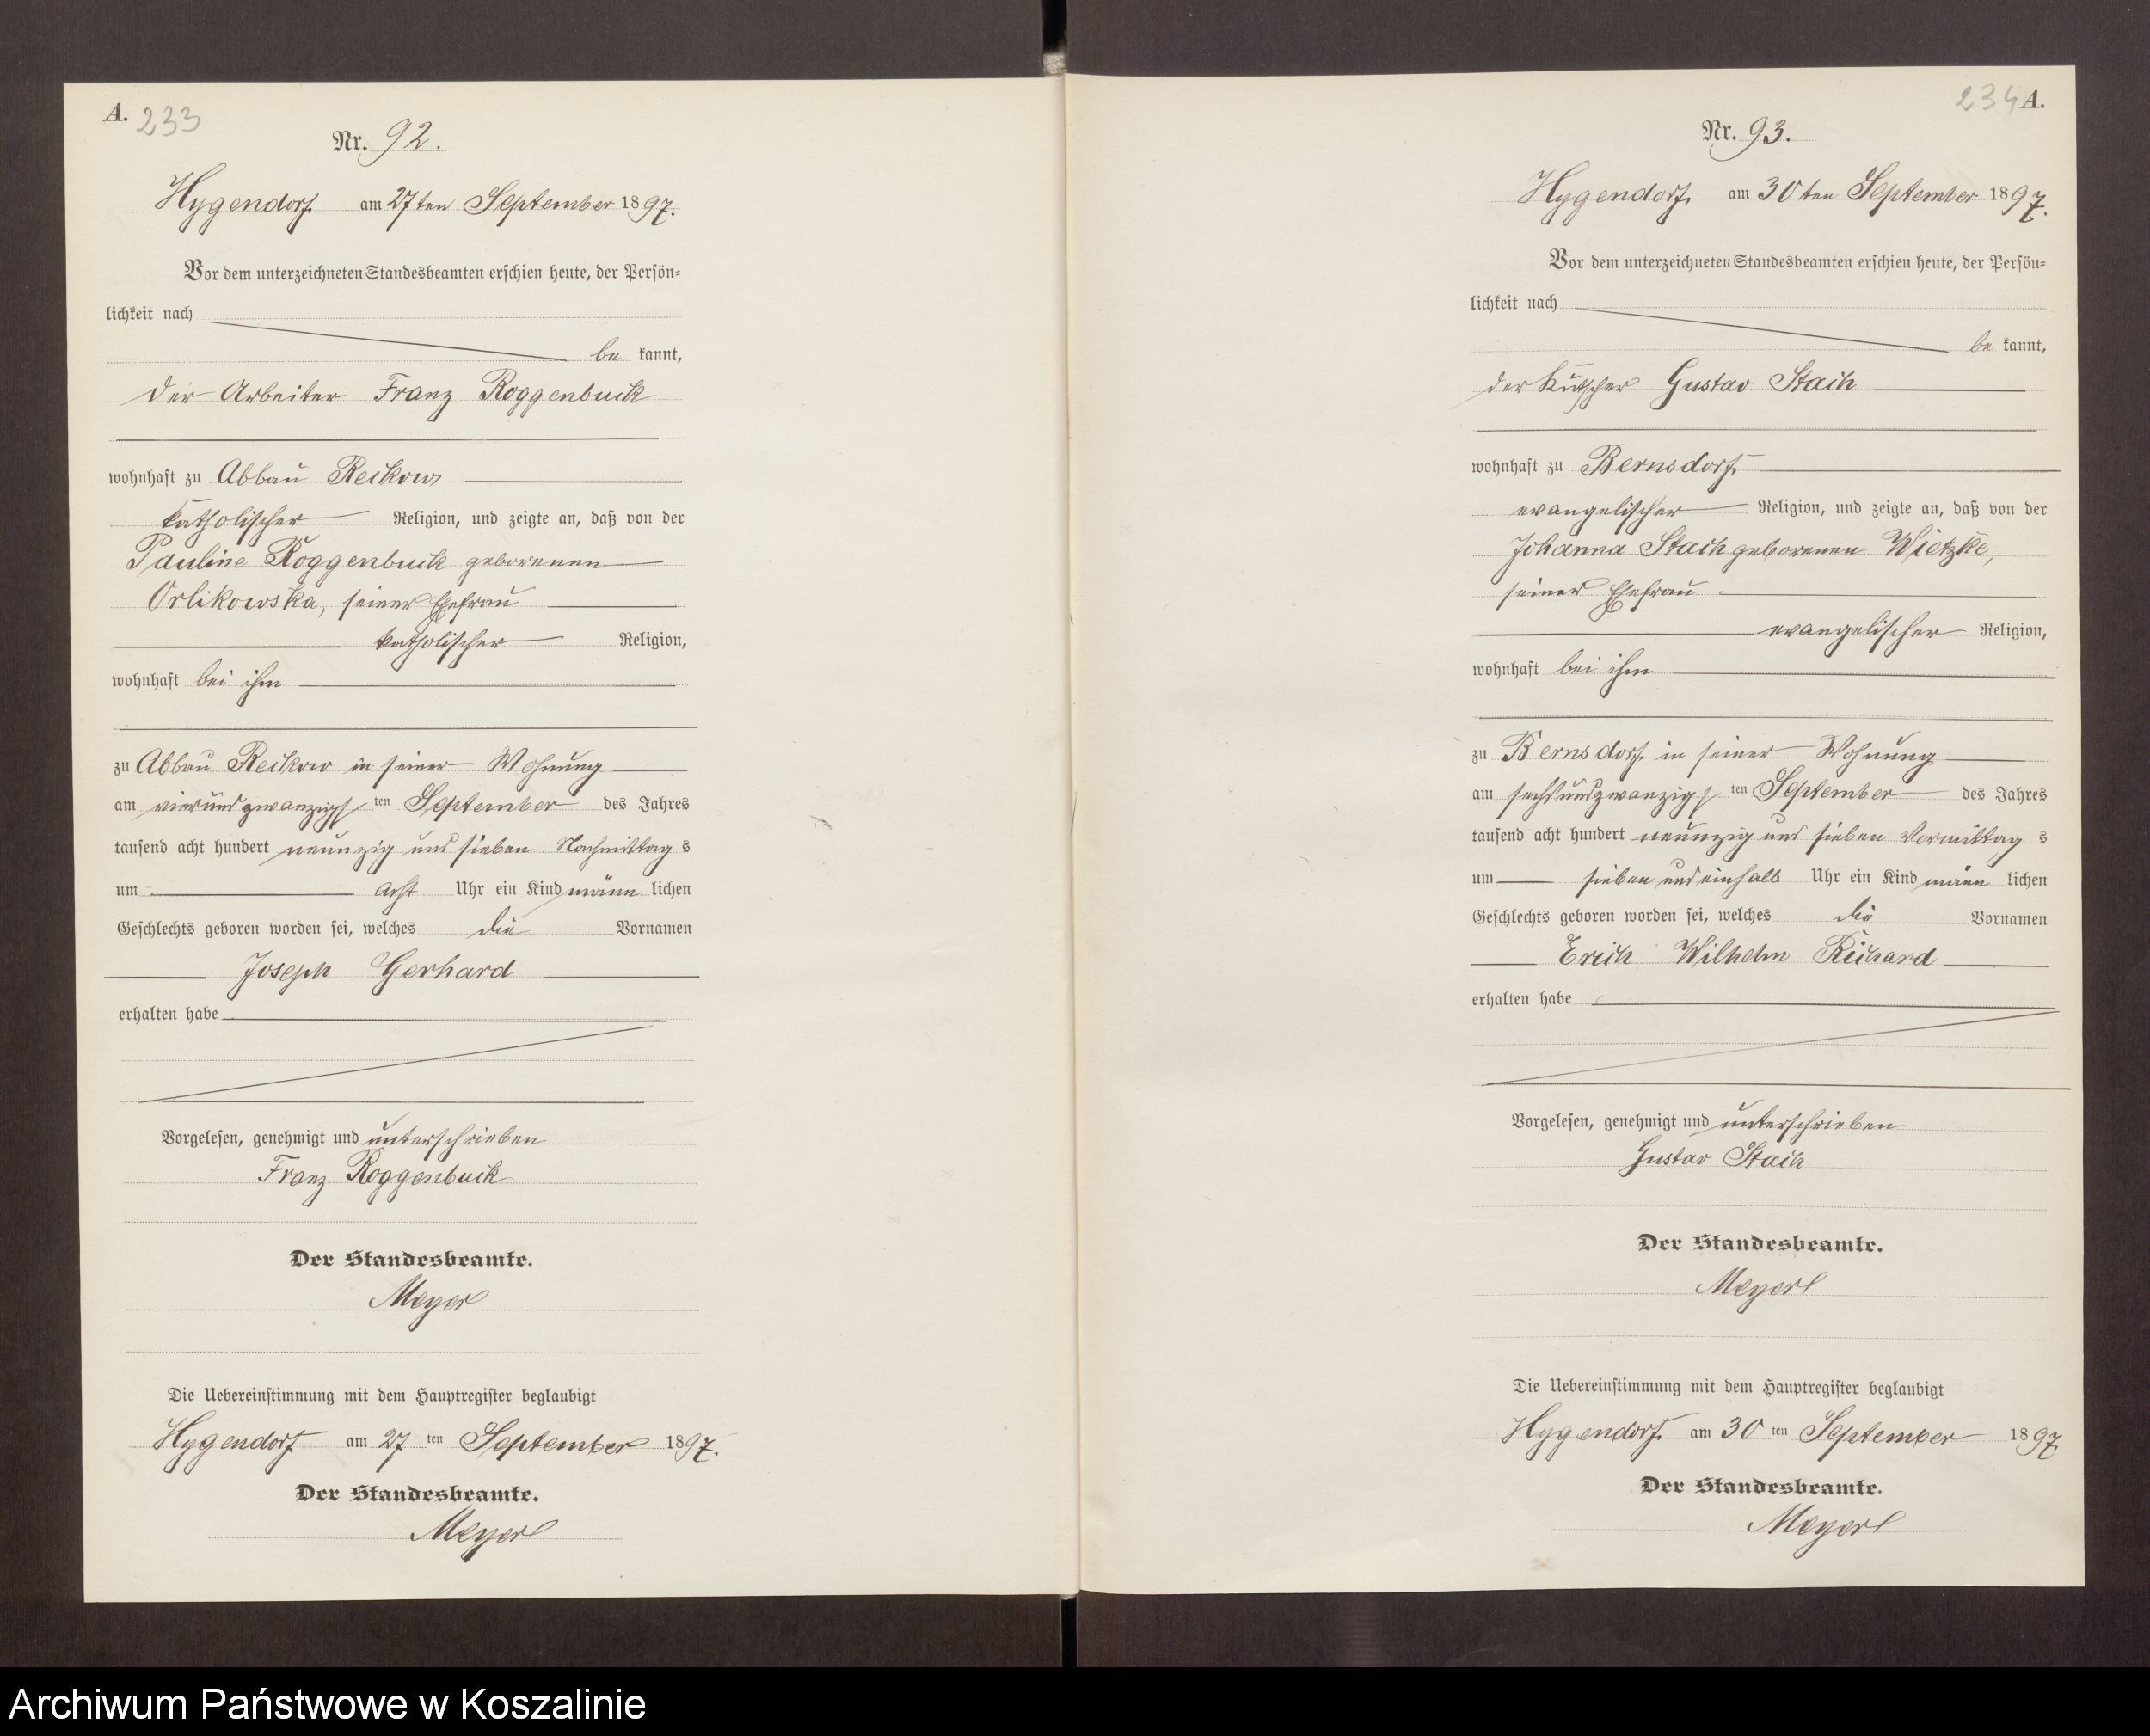 A. 233
Nr. 92.
Hygendorf am 27ten September 1897.
Vor dem unterzeichneten Standesbeamten erschien heute, der Persön-
lichkeit nach
be kannt,
der Arbeiter Franz Roggenbuck
wohnhaft zu Abbau Reckow
katholischer Religion, und zeigte an, daß von der
Pauline Roggenbuck geborenen
Orlikowska, seiner Ehefrau
katholischer Religion,
wohnhaft bei ihm
zu Abbau Reckow in seiner Wohnung
am vierundzwanzigsten September des Jahres
tausend acht hundert neunzig und sieben Nachmittags
um acht Uhr ein Kind männlichen
Geschlechts geboren worden sei, welches die Vornamen
Joseph Gerhard
erhalten habe
Vorgelesen, genehmigt und unterschrieben
Franz Roggenbuck
Der Standesbeamte.
Meyer
Die Uebereinstimmung mit dem Hauptregister beglaubigt
Hygendorf am 27 ten September 1897.
Der Standesbeamte.
Meyer
234 A.
Nr. 93.
Hygendorf, am 30ten September 1897.
Vor dem unterzeichneten Standesbeamten erschien heute, der Persön-
lichkeit nach
be kannt,
der Kutscher Gustav Stach
wohnhaft zu Bernsdorf
evangelischer Religion, und zeigte an, daß von der
Johanna Stach geborenen Wietzke,
seiner Ehefrau
evangelischer Religion,
wohnhaft bei ihm
zu Bernsdorf in seiner Wohnung
am sechsundzwanzigsten September des Jahres
tausend acht hundert neunzig und sieben Vormittags
um sieben und einhalb Uhr ein Kind männlichen
Geschlechts geboren worden sei, welches die Vornamen
Erich Wilhelm Richard
erhalten habe
Vorgelesen, genehmigt und unterschrieben
Gustav Stach
Der Standesbeamte.
Meyer
Die Uebereinstimmung mit dem Hauptregister beglaubigt
Hygendorf am 30 ten September 1897
Der Standesbeamte.
Meyer
Archiwum Państwowe w Koszalinie